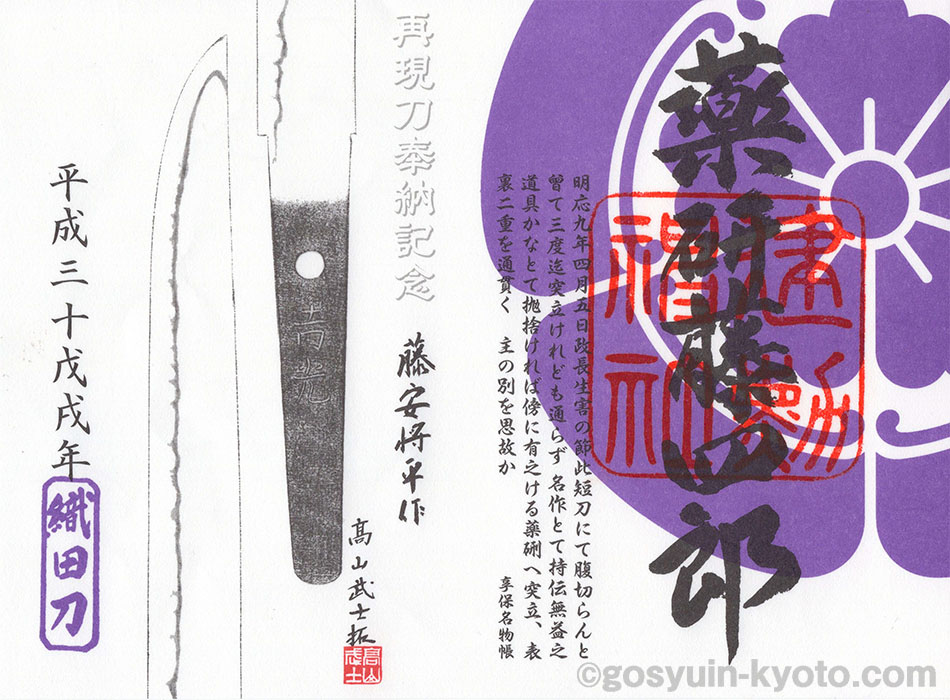 薬研藤四郎
建勲神社
明応九年四月五日政長生害の節此短刀にて腹切らんと
曾て三度迄突立けれども通らず名作とて持伝無益之
道具かなとて抛捨ければ傍に有之ける薬研へ突立、表
裏二重を通貫く　主の別を思故か
享保名物帳
再現刀奉納記念
藤安将平作
髙山武士拓
髙山武士
吉光
平成三十戊戌年
織田刀
©gosyuin-kyoto.com